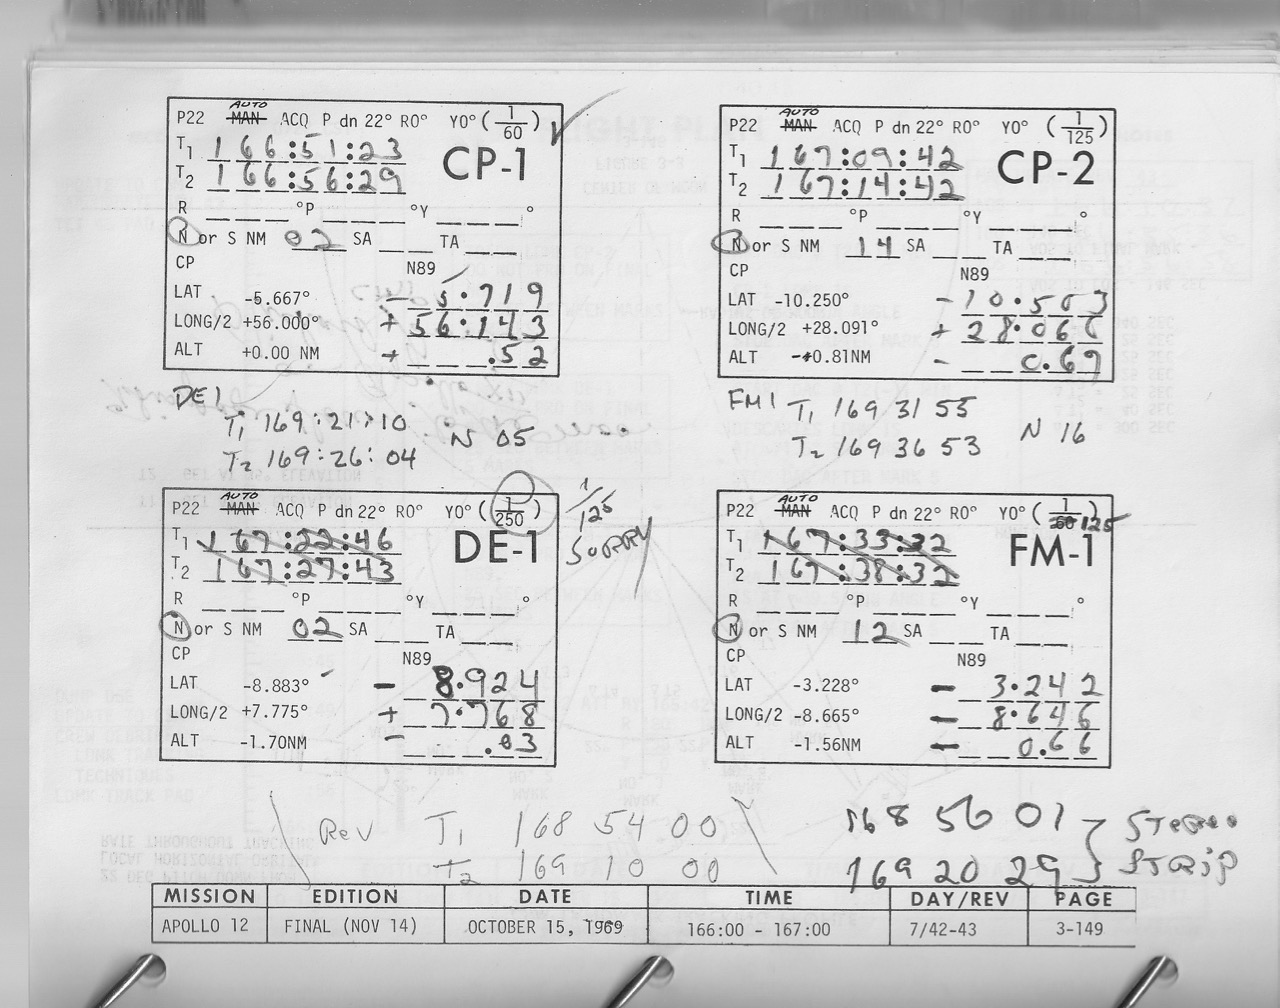 AUTO
P22 MAN ACQ P dn 22° R0° Y0° (1/60) ✓
T1 166:51:23
CP-1
T2 166:56:29
R ____ °P ____ °Y ____ °
N or S NM 02 SA __ TA ___
CP N89
LAT -5.667° - 5.719
LONG/2 +56.000° + 56.143
ALT +0.00 NM + .52
AUTO
P22 MAN ACQ P dn 22° R0° Y0° (1/125)
T1 167:09:42
CP-2
T2 167:14:42
R ____ °P ____ °Y ____ °
N or S NM 14 SA __ TA ___
CP N89
LAT -10.250° - 10.503
LONG/2 +28.091° + 28.066
ALT -+0.81NM - 0.67
DE1
T1 169:21:10
N 05
T2 169:26:04
FM1 T1 169 31 55
N 16
T2 169 36 53
AUTO
P22 MAN ACQ P dn 22° R0° Y0° (1/250)
1/125
SORRY
T1 167:22:46
DE-1
T2 167:27:43
R ____ °P ____ °Y ____ °
N or S NM 02 SA __ TA ___
CP N89
LAT -8.883° - 8.924
LONG/2 +7.775° + 7.768
ALT -1.70NM - .83
AUTO
P22 MAN ACQ P dn 22° R0° Y0° (1/60 125
T1 167:33:32
FM-1
T2 167:38:32
R ____ °P ____ °Y ____ °
N or S NM 12 SA __ TA ___
CP N89
LAT -3.228° - 3.242
LONG/2 -8.665° - 8.646
ALT -1.56NM - 0.66
Rev T1 168 54 00
T2 169 10 00
168 56 01
169 20 29
Stereo
Strip
MISSION EDITION DATE TIME DAY/REV PAGE
APOLLO 12 FINAL (NOV 14) OCTOBER 15, 1969 166:00 - 167:00 7/42-43 3-149